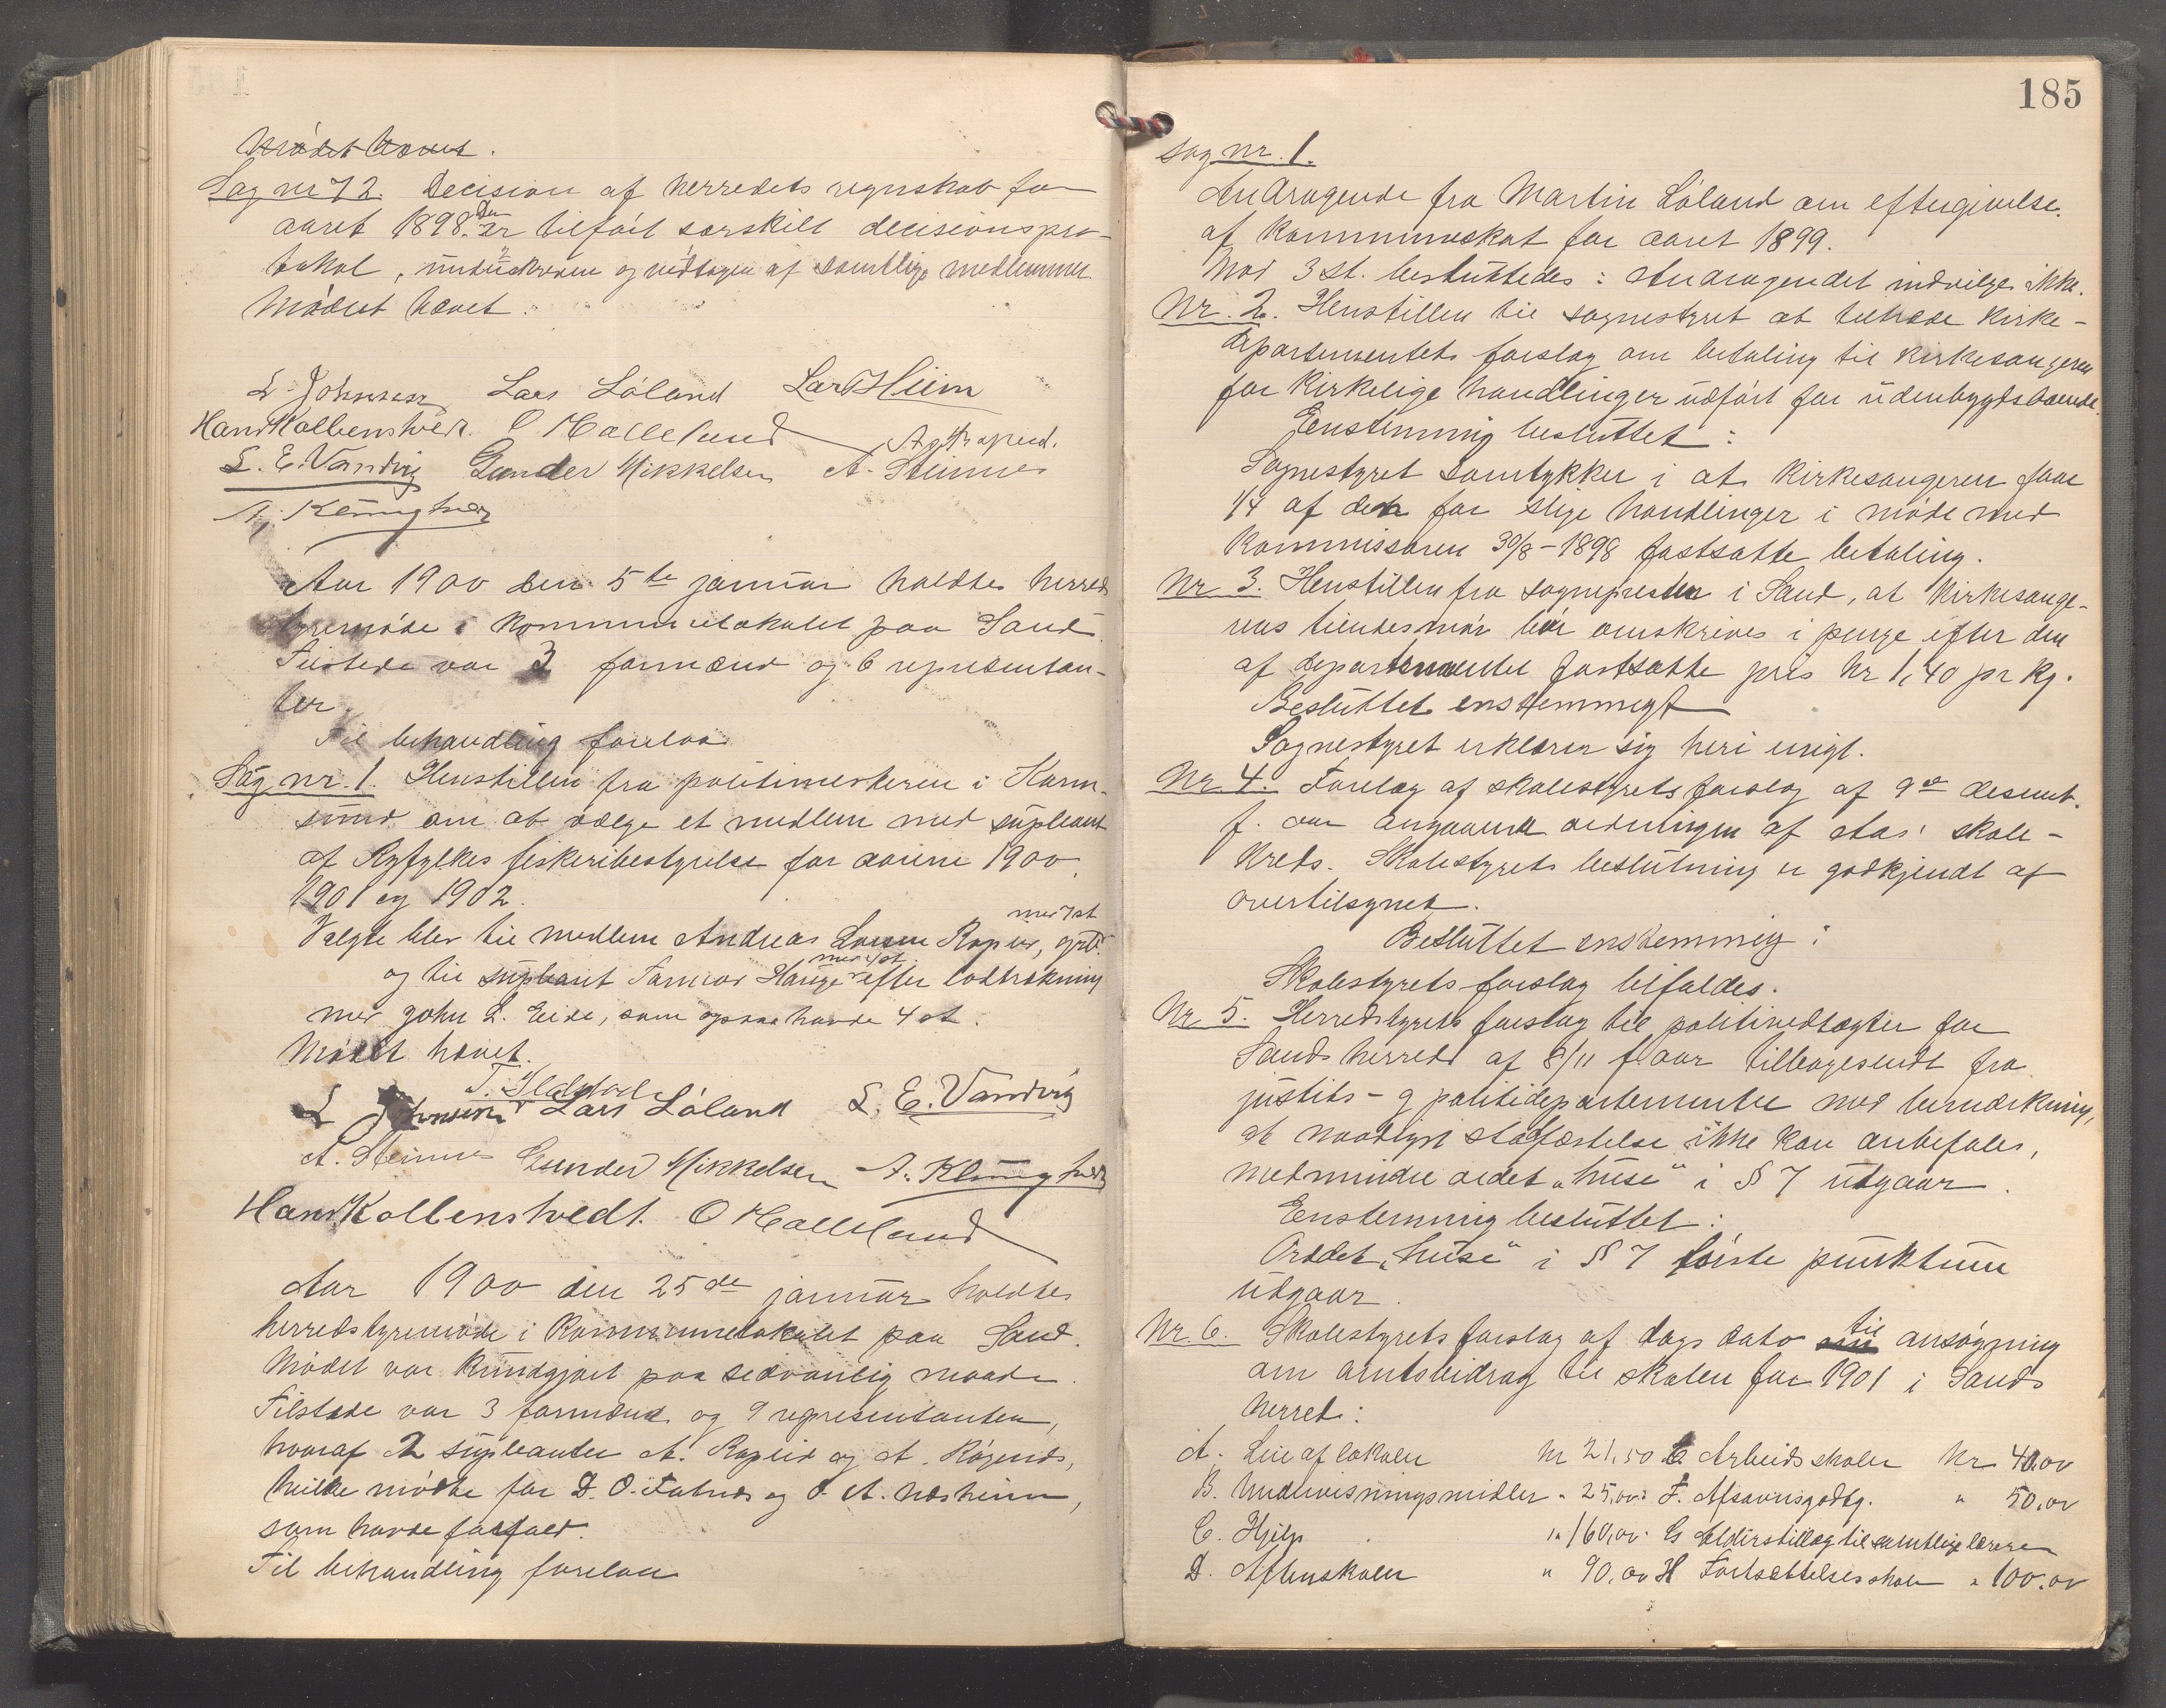 Mødet hævet.
Sag nr 72. Decision af herredets regnskab for
aaret 1898. Den er tilført særskilt decisionspro-
tokol, underskreven og vedtagen af samtlige medlemmer
Mødet hævet.
L. Johnsen Lars Løland Lars Hiim
Hans Kolbenstvedt. O Halleland A. Rapeid.
L. E. Vandvig Gunder Mikkelsen A. Steinnes
A. Klungtvedt
Aar 1900 den 5te januar holdtes herreds
styremøde i kommunelokalet paa Sand.
Tilstede var 3 formænd og 6 representan-
ter.
Til behandling forelaa
Sag nr. 1. Henstillen fra politimesteren i Karm-
sund om at vælge et medlem med supleant
af Ryfylkes fiskeribestyrelse for aarene 1900,
1901 og 1902.
med 7 st
Valgte blev til medlem Andreas Larsen Rapeid,
og til supleant Tarmod Hauge med 4 st. efter lodtrækning
med John L. Eide, som ogsaa havde 4 st.
Mødet hævet.
L Johnsen Lars Løland L. E. Vandvig
A. Steinnes Gunder Mikkelsen A. Klungtvedt
Hans Kolbenstvedt. O Halleland
Aar 1900 den 25de januar holdtes
herredstyremøde i Kommunelokalet paa Sand.
Mødet var kundgjort paa sedvanlig maade.
Tilstede var 3 formænd og 9 representanter,
hvoraf 2 supleanter A. Rapeid og A. Røgends,
hvilke mødte for D. O. Fatnes og O. A. Næsheim,
som havde forfald.
Til behandling forelaa
185
Sag nr. 1.
Andragende fra Martin Løland om eftergivelse
af kommuneskat for aaret 1899.
Mod 3 st. besluttedes: Andragendet indvilges ikke.
Nr. 2. Henstillen til sognestyret at tiltræde kirke-
departementets forslag om betaling til kirkesangeren
for kirkelige handlinger udført for udenbygdsboende.
Enstemmig besluttet:
Sognestyret samtykker i at kirkesangeren faar
1/4 af den for slige handlinger i møde med
kommissæren 30/8-1898 fastsatte betaling.
Nr 3. Henstillen fra sognepresten i Sand, at kirkesange-
rens tiendesmør bør omskrives i penge efter den
af departementet fastsatte pris kr 1,40 pr kg.
Besluttet enstemmigt
Sognestyret erklærer sig heri enigt.
Nr 4. Forelag af skolestyrets forslag af 9de desemb.
f. aar angaaende ordningen af Aas' skole-
kreds. Skolestyrets beslutning er godkjendt af
overtilsynet.
Besluttet enstemmig:
Skolestyrets forslag bifaldes.
Nr 5. Herredstyrets forslag til politivedtægter for
Sands herred af 8/11 f. aar tilbagesendt fra
justits- og politidepartementet med bemærkning,
at naadigst stadfæstelse ikke kan anbefales,
medmindre ordet "huse" i § 7 udgaar.
Enstemmig besluttet:
Ordet "huse" i § 7 første punktum
udgaar.
Nr 6. Skolestyrets forslag af dags dato til ansøgning
om amtsbidrag til skolen for 1901 i Sands
herred:
A. Leie af lokaler kr 21,50 E Arbeidsskoler kr 40,00
B. Undervisningsmidler " 25,00 F. Afsavnsgodtg. " 50,00
C. Hjelp " 160,00 G Alderstillæg til samtlige lærere
D. Aftenskoler " 90,00 H Fortsættelsesskole " 100,00